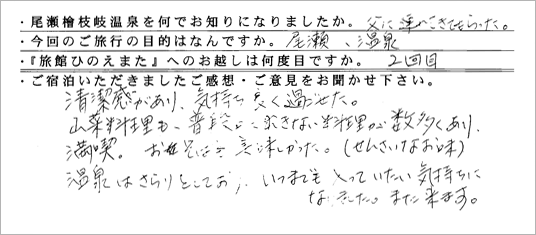 ・尾瀬檜枝岐温泉を何でお知りになりましたか。 父に連れてきてもらった。
・今回のご旅行の目的はなんですか。 尾瀬、温泉
・『旅館ひのえまた』へのお越しは何度目ですか。 2回目
・ご宿泊いただきましたご感想・ご意見をお聞かせ下さい。
清潔感があり、気持ち良く過ごせた。
山菜料理も、普段は できない料理が数多くあり、
満喫。 お 美味しかった。(せんさいなお味)
温泉はさらりとしており、いつまでも 入っていたい気持ちに
なりました。また来ます。